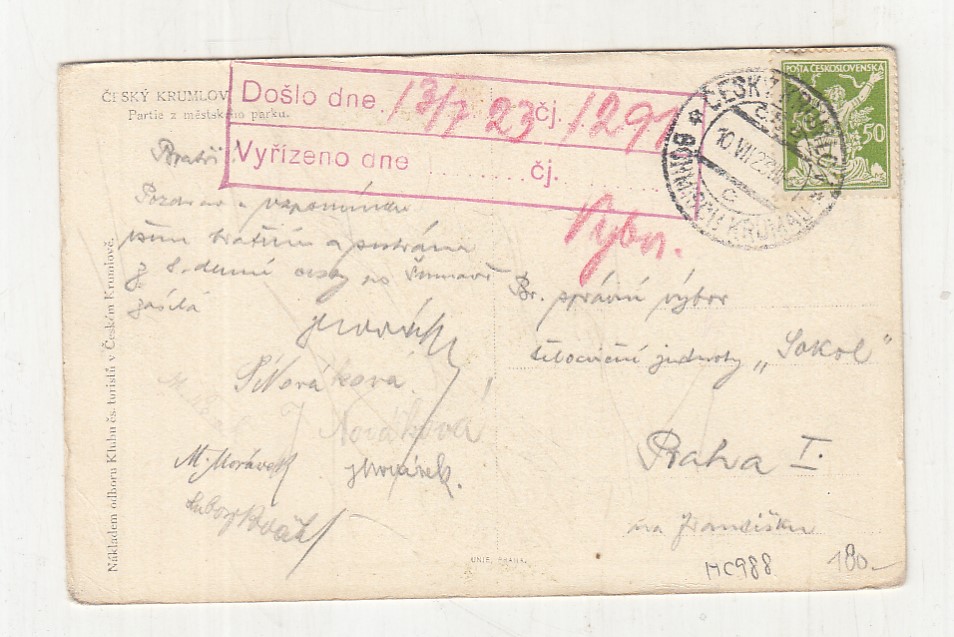 ČESKÝ KRUMLOV
Partie z městského parku.
Došlo dne 13/7 23 čj. 1291
Vyřízeno dne čj.
Výbor.
POŠTA ČESKOSLOVENSKÁ
50
ČESKÝ KRUMLOV
10 VII 23
c
BÖHMISCH KRUMAU
Bratři
Pozdrav a vzpomínku
všem bratřím a sestrám
z 8-denní cesty po Šumavě
zasílá
Nováková
Nováková
M. Morávek
Br. správní výbor
tělocvičné jednoty „Sokol“
Praha I.
na Františku
Nákladem odboru Klubu čs. turistů v Českém Krumlově.
UNIE, PRAHA.
MC988
180.-